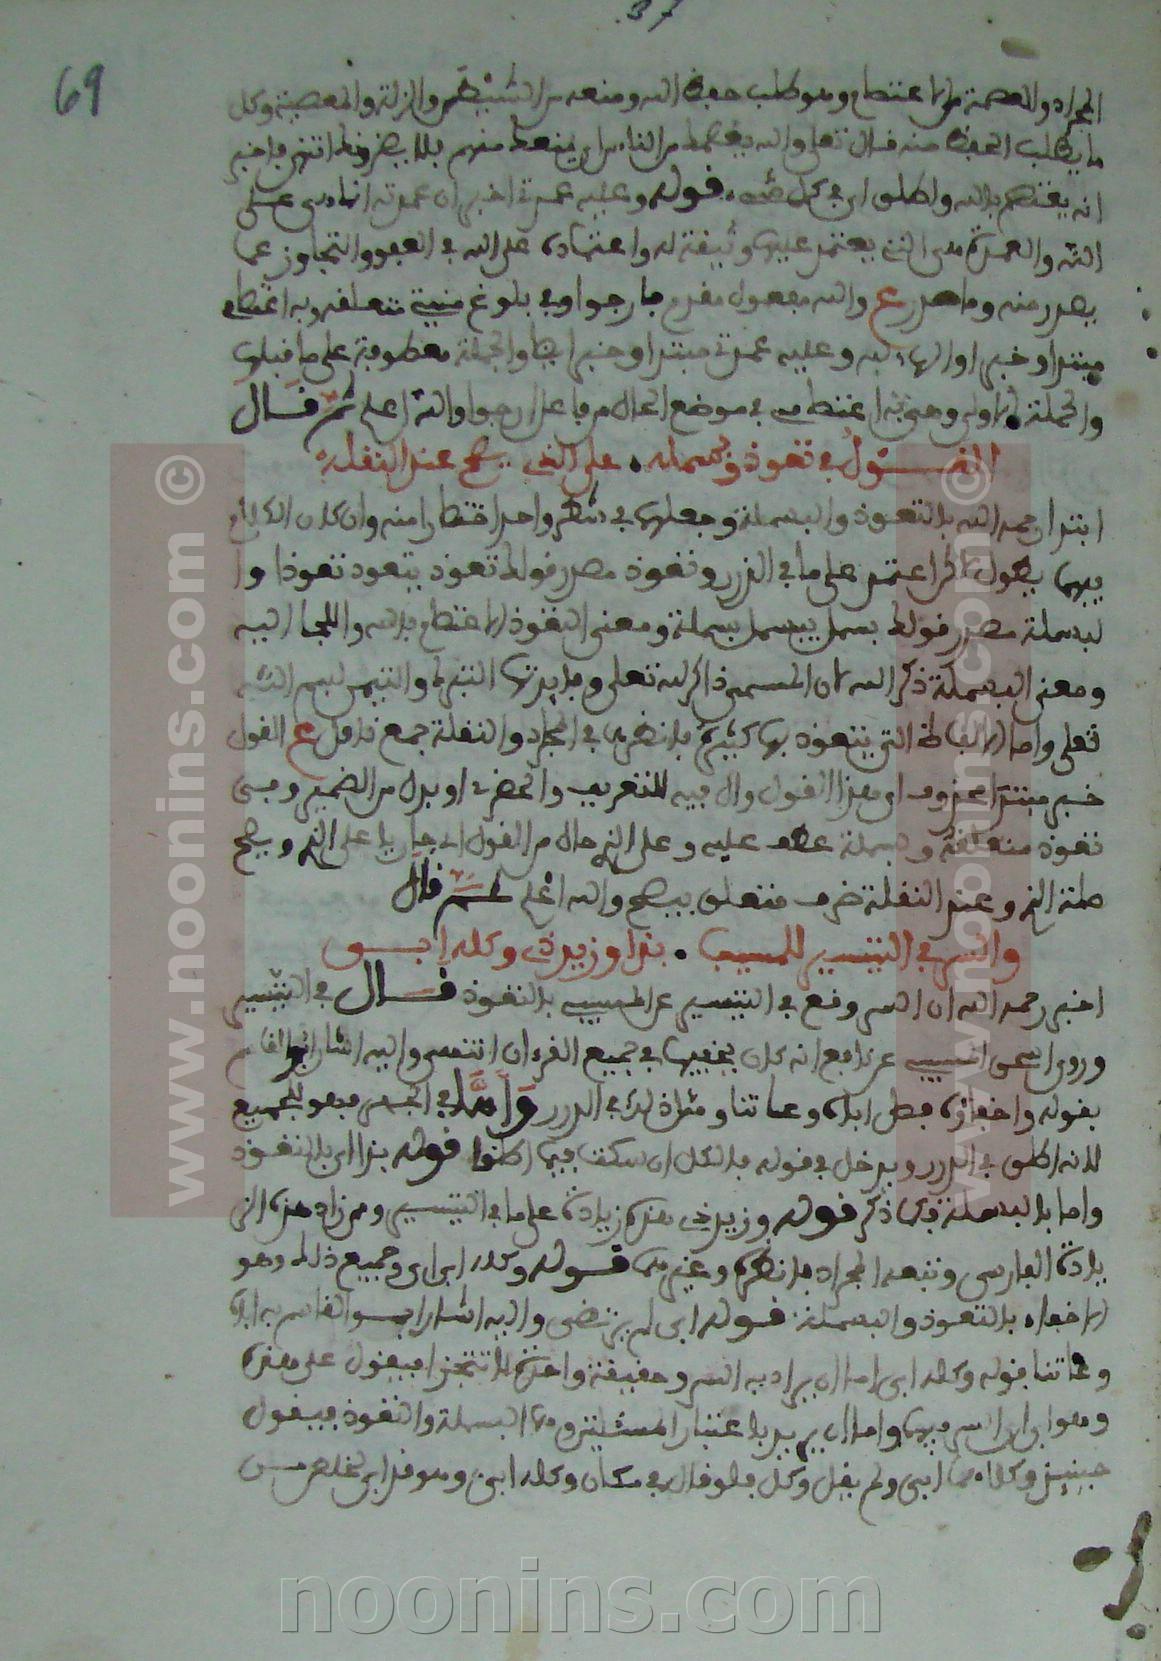 37
69
المراد والعصمة من الاعتصام وهو طلب حفظ الله ومنعه من الشيطن والزلة والمعصية وكل
ما يطلب الحفظ منه قال تعلى والله يعصمك من الناس اي يمنعك منهم بلا يضرونك انتهى فاخبر
انه يعتصم بالله واطلق اي في كل شيء قوله وعليه عمدتي اخبر ان عمدته انما هي على
الله والعمدة هي التي يعتمد عليها وثيقة له واعتماده على الله في العفو والتجاوز عما
يصدر منه وما صدر ع والله مفعول مقدم بارجوا وفي بلوغ منيتي متعلقه وبه اعتصامي
مبتدا وخبر اوالهاء لله وعليه عمدتي مبتدا وخبر ايضا والجملة معطوفة على ما قبلها
والجملة الاولى وهي به اعتصامي في موضع الحال من فاعل ارجوا والله اعلم ثم قال
القول في تعوذ وبسمله . على الذي يصح عند النقله
ابتدا رحمه الله بالتعوذ والبسملة وجعلها في شطر واحد اختصارا منه وان كان الكلام
فيها يطول لاكن اعتمد على ما في الدرر وتعوذ مصدر قولك تعوذ يتعوذ تعوذا وا
لبسملة مصدر قولك بسمل يبسمل بسملة ومعنى التعوذ الاعتصام بالله واللجا اليه
ومعنى البسملة ذكر الله لان المسمي ذاكر لله تعلى وفايدتها التبرك والتيمن لبسم الله
تعلى واما الالفاظ التي يتعوذ بها كثيرة فانظره في المراد والنقلة جمع ناقل ع القول
خبر مبتدا محذوف اي هذا القول وال فيه للتعريف والحضر او بدل من الضمير وفي
تعوذ متعلقه وبسملة عطف عليه وعلى الذي حال من القول اي جاريا على الذي ويصح
صلة الذي وعند النقلة ظرف متعلق بيصح والله اعلم ثم قال
والسر في التيسير للمسيب . بذا وزيد ذي وكله ابي
اخبر رحمه الله ان السر وقع في التيسير عن المسيبي بالتعوذ قال في التيسير
وروى اسحق المسيبي عن نافع انه كان يخفيها في جميع القرءان انتهى واليه اشار ابو القاسم
بقوله واخفاؤه فصل اباه وعاتنا ومثل ذلك في الدرر واما في الجهر فهو للجميع
لانه اطلق في الدرر ويدخل في قوله بالكل ان سكت فيما اطلقوا قوله بذا اي بالتعوذ
واما بالبسملة فكما ذكر قوله وزيد ذي هذه زيادة على ما في التيسير وممن زاد هذه الز
يادة الفارسي وتبعه المراد فانظره وغيرهما قوله وكله ابي اي وجميع ذلك وهو
الاخفاء بالتعوذ والبسملة قوله ابي لم يرتضى واليه اشار ابو القاسم به اباه
وعاتنا قوله وكله ابي اما ان يراد به السر وحقيقة واحدة لا تتجزا فيقول على هذه
وهو ابي اي السر فيها واما ان يريد باعتبار المسئلتين وهما البسملة والتعوذ فيقول
حينيذ وكلاهما ابي ولم يقل وكل فلو قال في مكان وكله ابي وهو قد ابي لخلص من